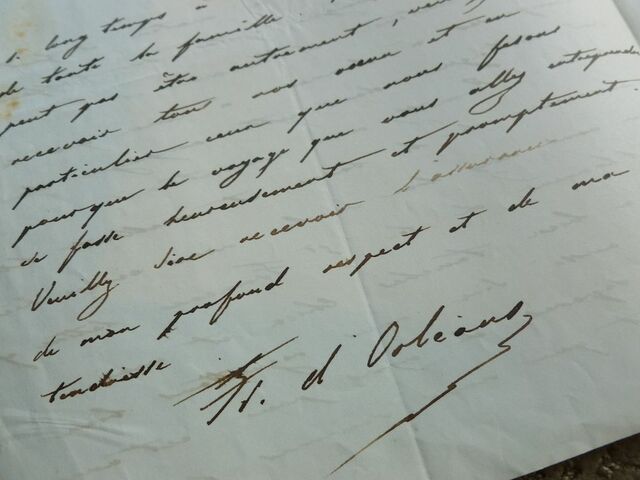 long temps à
de toute la famille
peut pas être autrement,
recevoir tous nos vœux et en
particulier ceux que nous fesons
pour que le voyage que vous allez entreprendre
se fasse heureusement et promptement.
Veuillez Sire recevoir l'assurance
de mon profond respect et de ma
tendresse
d'Orléans